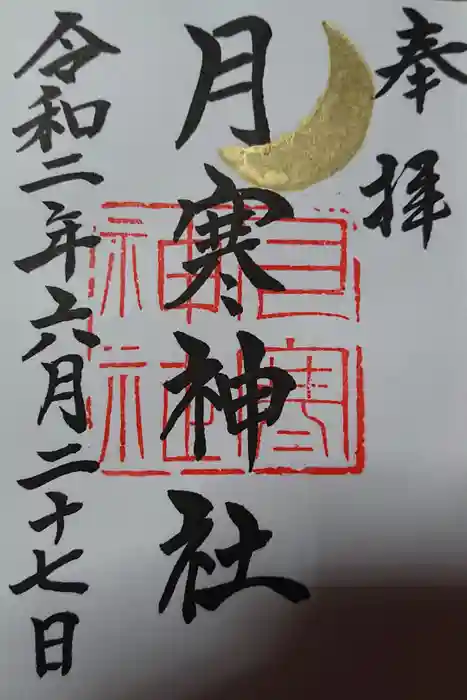 奉拝
月寒神社
令和二年六月二十七日